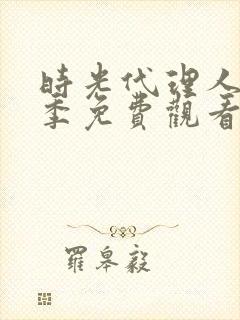 時光代理人
季免費觀看
羅皋毅